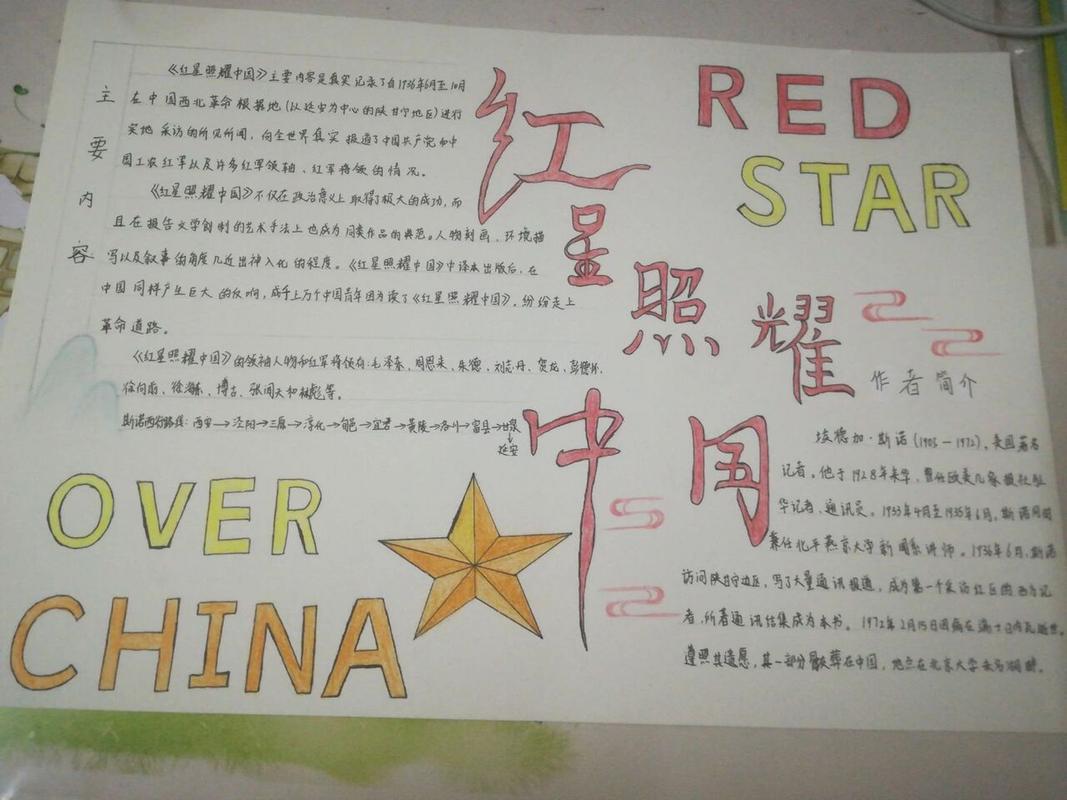 主要内容
《红星照耀中国》主要内容是真实记录了自1936年6月至10月
在中国西北革命根据地(以延安为中心的陕甘宁地区)进行
实地采访的所见所闻，向全世界真实报道了中国共产党和中
国工农红军以及许多红军领袖、红军将领的情况。
《红星照耀中国》不仅在政治意义上取得了极大的成功，而
且在报告文学创制的艺术手法上也成为同类作品的典范。人物刻画、环境描
写以及叙事的角度几近出神入化的程度。《红星照耀中国》中译本出版后，在
中国同样产生巨大的反响，成千上万个中国青年因为读了《红星照耀中国》，纷纷走上
革命道路。
《红星照耀中国》的领袖人物和红军将领有:毛泽东、周恩来、朱德、刘志丹、贺龙、彭德怀、
徐向前、徐海东、博古、张闻天和林彪等。
斯诺西行路线：西安→泾阳→三原→淳化→旬邑→宜君→黄陵→洛川→富县→甘泉
↓
延安
红星照耀中国
RED
STAR
OVER
CHINA
作者简介
埃德加·斯诺(1905—1972)，美国著名
记者。他于1928年来华，曾任欧美几家报社驻
华记者、通讯员。1933年4月至1935年6月，斯诺同时
兼任北平燕京大学新闻系讲师。1936年6月，斯诺
访问陕甘宁边区，写了大量通讯报道，成为第一个采访红区的西方记
者，所著通讯结集成为本书。1972年2月15日因病在瑞士日内瓦逝世。
遵照其遗愿，其一部分骨灰葬在中国，地点在北京大学未名湖畔。